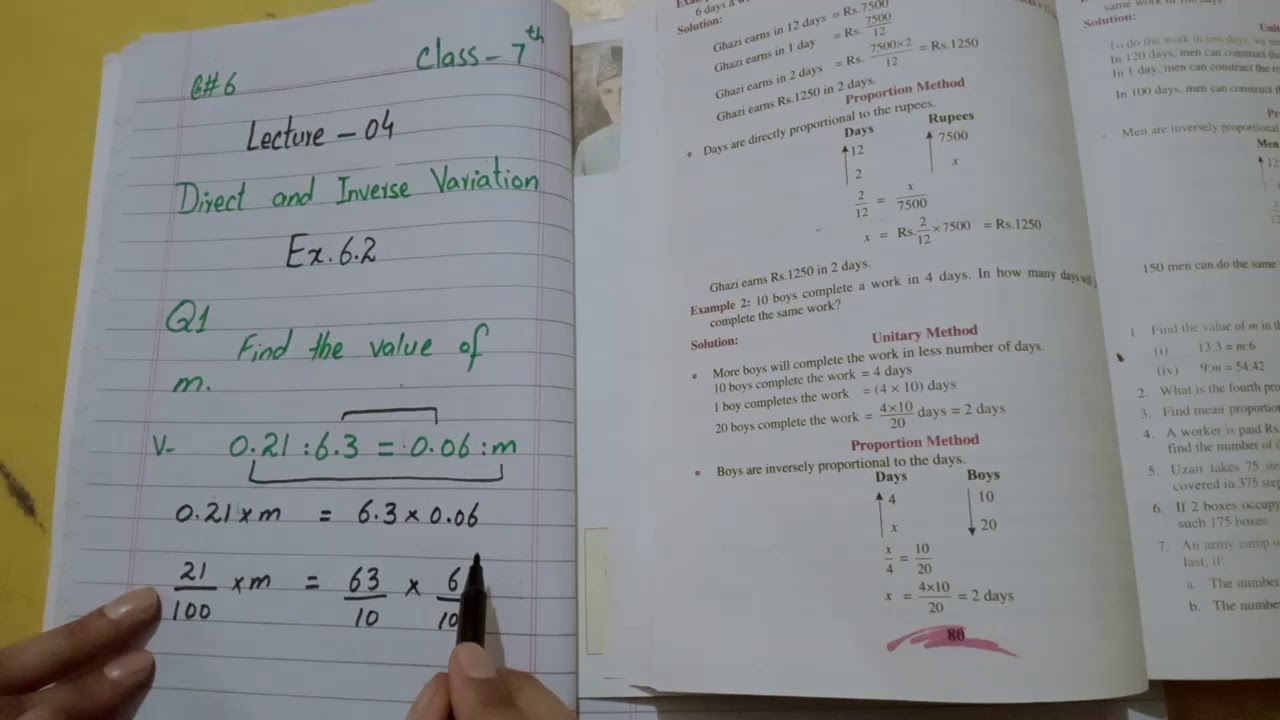 Class - 7th
C#6
Lecture - 04
Direct and Inverse Variation
Ex. 6.2
Q1
Find the value of
m.
V- 0.21 : 6.3 = 0.06 : m
0.21 × m = 6.3 × 0.06
21/100 × m = 63/10 × 6/10
6 days
Solution:
Ghazi earns in 12 days = Rs.7500
Ghazi earns in 1 day = Rs. 7500/12
Ghazi earns in 2 days = Rs. 7500×2/12 = Rs.1250
Ghazi earns Rs.1250 in 2 days.
Proportion Method
• Days are directly proportional to the rupees.
Days Rupees
12 7500
2 x
2/12 = x/7500
x = Rs. 2/12 × 7500 = Rs.1250
Ghazi earns Rs.1250 in 2 days.
Example 2: 10 boys complete a work in 4 days. In how many days
complete the same work?
Solution:
Unitary Method
• More boys will complete the work in less number of days.
10 boys complete the work = 4 days
1 boy completes the work = (4 × 10) days
20 boys complete the work = 4×10/20 days = 2 days
Proportion Method
• Boys are inversely proportional to the days.
Days Boys
4 10
x 20
x/4 = 10/20
x = 4×10/20 = 2 days
80
Solution:
To do the work in less days, we
In 120 days, men can construct the
In 1 day, men can construct the
In 100 days, men can construct
Men are inversely proportional
Men
150 men can do the same
1. Find the value of m in
(i) 13:3 = m:6
(iv) 9:m = 54:42
2. What is the fourth
3. Find mean
4. A worker is paid Rs.
find the number of
5. Uzair takes 75
covered in 375
6. If 2 boxes occupy
such 175 boxes.
7. An army camp
last, if:
a. The number
b. The